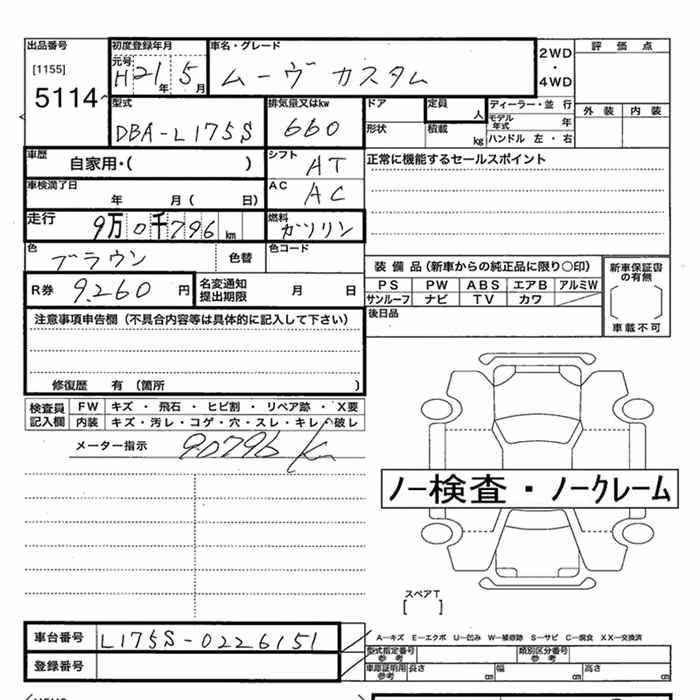 出品番号 初度登録年月 車名・グレード 評価点
[1155] 元号 H 21年 5月 ムーヴ カスタム 2WD・4WD
5114
型式 排気量又はkw ドア 定員 人 ディーラー・並行 外装 内装
DBA-L175S 660 形状 積載 kg モデル年式 年
ハンドル 左・右
車歴 自家用・( ) シフト AT 正常に機能するセールスポイント
車検満了日 年 月 ( 日) AC AC
走行 9万0千796km 燃料 ガソリン
色 ブラウン 色替 色コード
装備品(新車からの純正品に限り○印) 新車保証書の有無
R券 9,260円 名変通知提出期限 月 日 PS PW ABS エアB アルミW
サンルーフ ナビ TV カワ
注意事項申告欄(不具合内容等は具体的に記入して下さい) 後日品 車載不可
修復歴 有 (箇所 )
検査員記入欄 FW キズ・飛石・ヒビ割・リペア跡・X要
内装 キズ・汚レ・コゲ・穴・スレ・キレ・破レ
メーター指示 90796 K
ノー検査・ノークレーム
スペアT
[ ]
車台番号 L175S-0226151 A-キズ E-エクボ U-凹み W-補修跡 S-サビ C-腐食 XX-交換済
型式指定番号 参考 類別区分番号 参考
登録番号 車庫証明用 参考 長さ cm 幅 cm 高さ cm